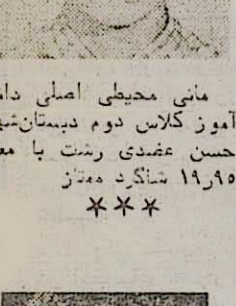 مانی محیطی اصلی دانش
آموز کلاس دوم دبستان شهید
حسن عضدی رشت با معدل
۱۹ر۹۵ شاگرد ممتاز
***